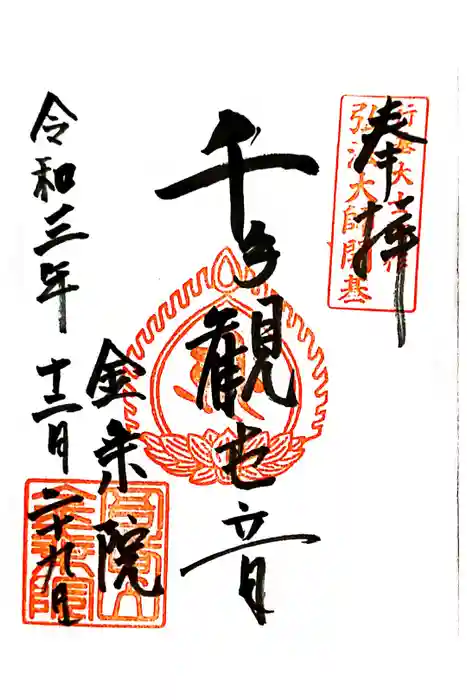 奉拝
弘法大師開基
千手観世音
金乗院
令和三年 十二月 二十九日